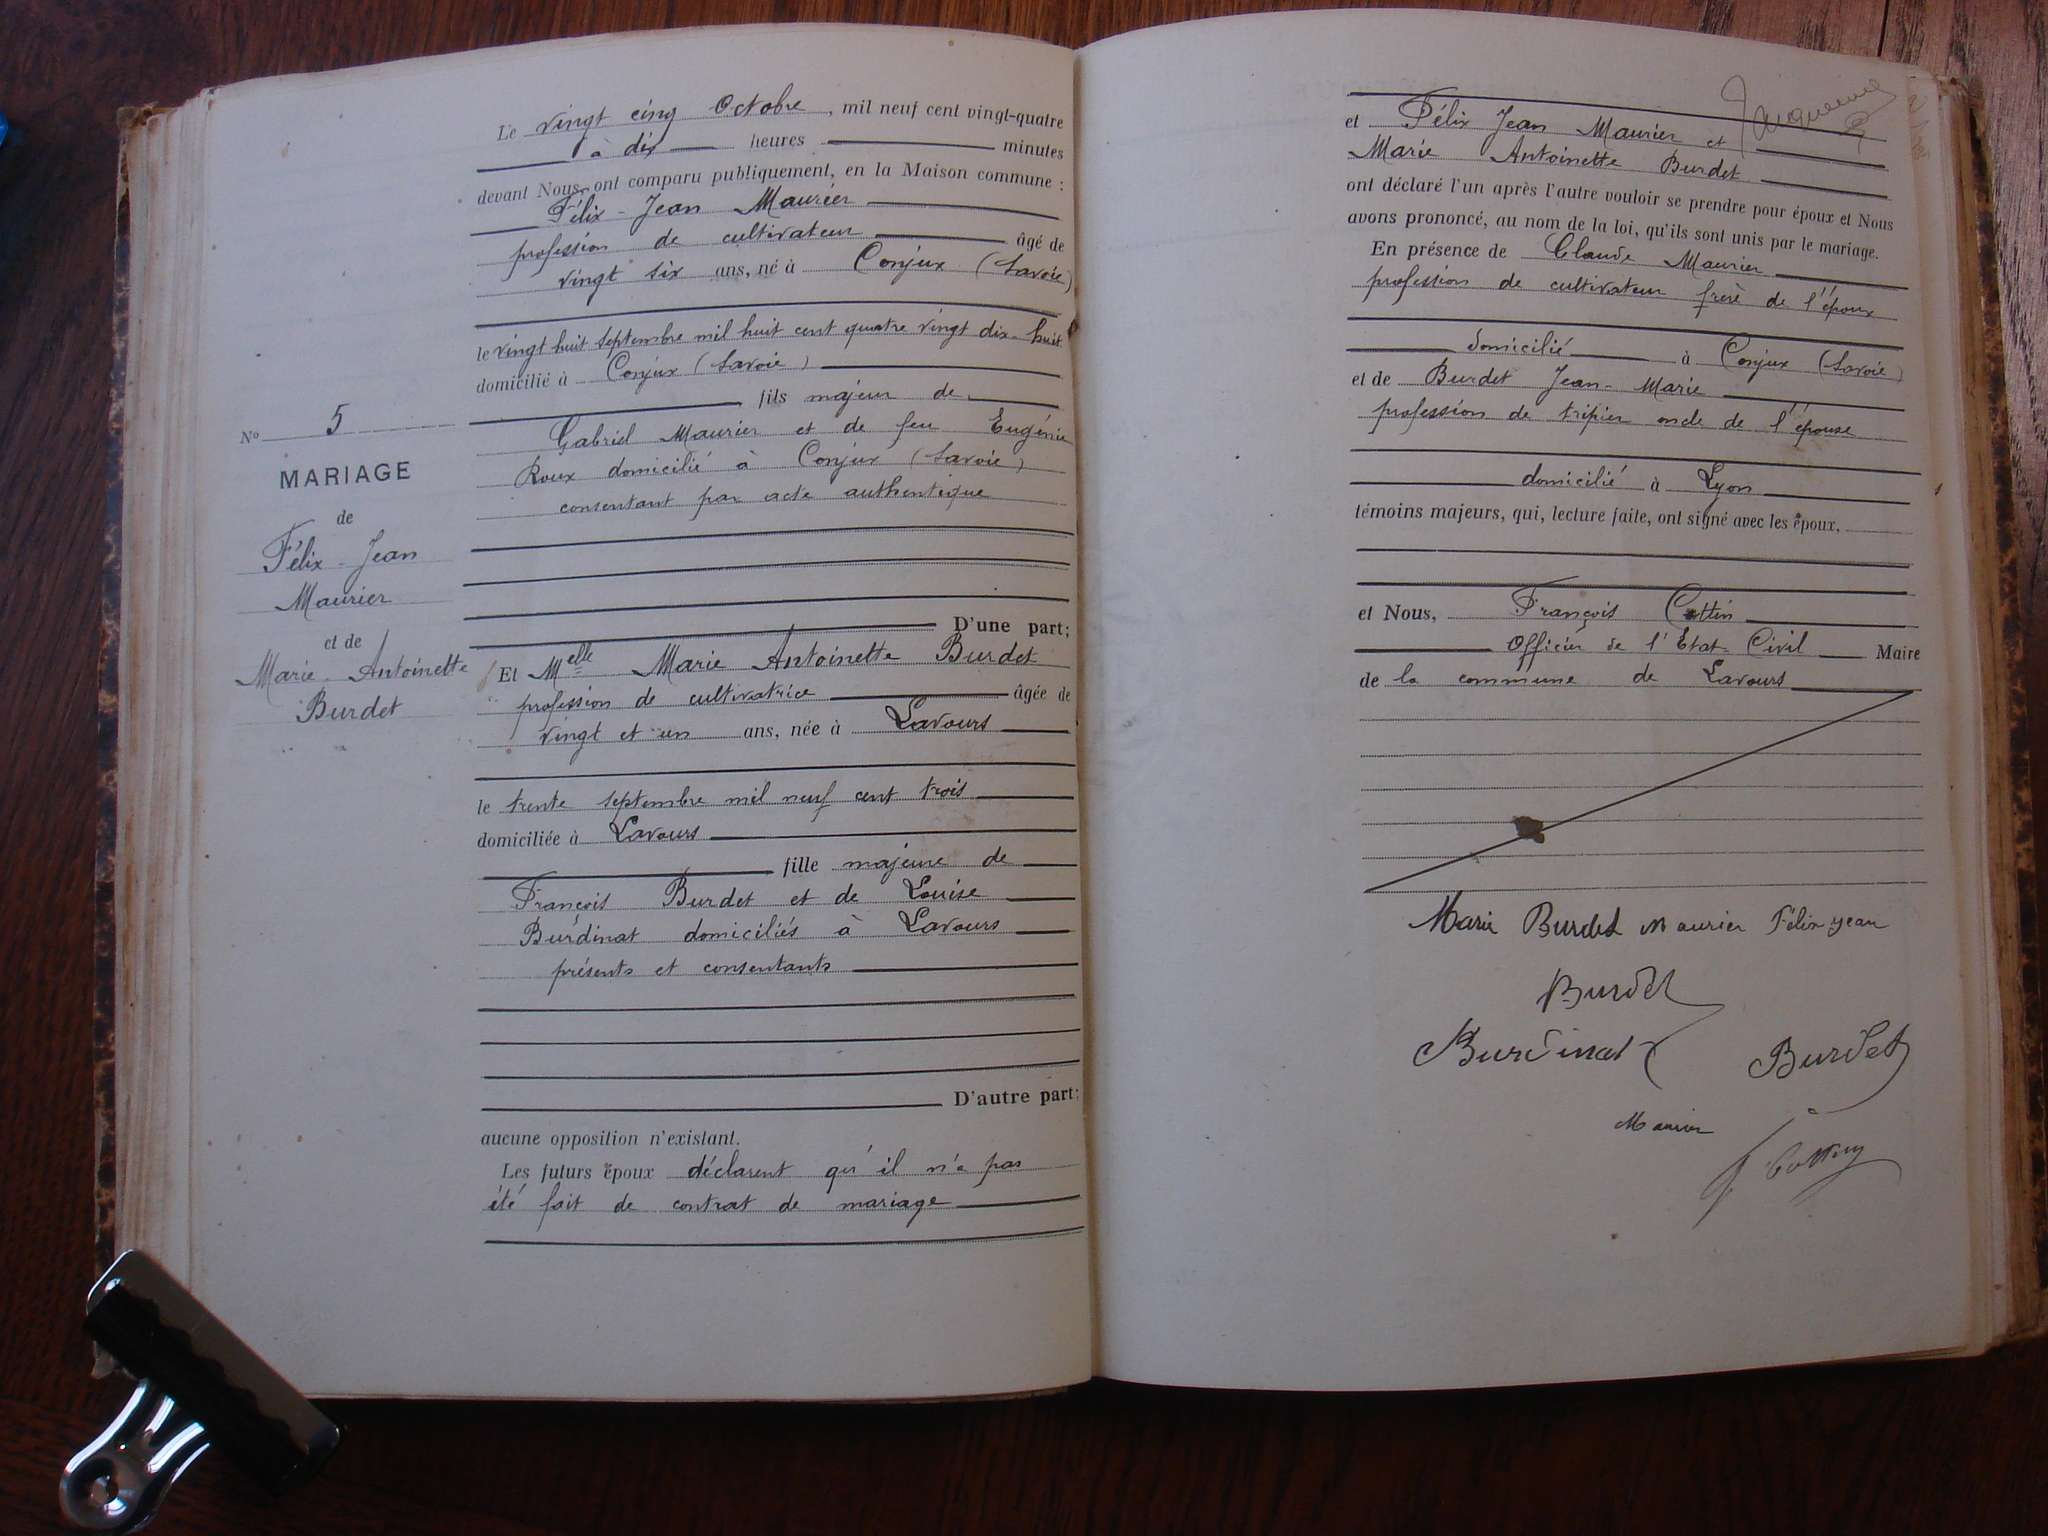 Le vingt cinq Octobre, mil neuf cent vingt-quatre
à dix heures minutes
devant Nous, ont comparu publiquement, en la Maison commune :
Félix - Jean Maurier
profession de cultivateur âgé de
vingt six ans, né à Conjux (Savoie)
le vingt huit septembre mil huit cent quatre vingt dix-huit
domicilié à Conjux (Savoie)
fils majeur de
Gabriel Maurier et de feu Eugénie
Roux domicilié à Conjux (Savoie)
consentant par acte authentique
D'une part;
Et Melle Marie Antoinette Burdet
profession de cultivatrice âgée de
vingt et un ans, née à Lavours
le trente septembre mil neuf cent trois
domiciliée à Lavours
fille majeure de
François Burdet et de Louise
Burdinat domiciliés à Lavours
présents et consentants
D'autre part;
aucune opposition n'existant.
Les futurs époux déclarent qu'il n'a pas
été fait de contrat de mariage
No 5
MARIAGE
de
Félix - Jean
Maurier
et de
Marie - Antoinette
Burdet
et Félix Jean Maurier et
Marie Antoinette Burdet
ont déclaré l'un après l'autre vouloir se prendre pour époux et Nous
avons prononcé, au nom de la loi, qu'ils sont unis par le mariage.
En présence de Claude Maurier
profession de cultivateur frère de l'époux
domicilié à Conjux (Savoie)
et de Burdet Jean-Marie
profession de tripier oncle de l'épouse
domicilié à Lyon
témoins majeurs, qui, lecture faite, ont signé avec les époux,
et Nous, François Cottin
Officier de l'Etat-Civil Maire
de la commune de Lavours
Marie Burdet Maurier Félix Jean
Burdet
Burdinat Burdet
Maurier
F. Cottin